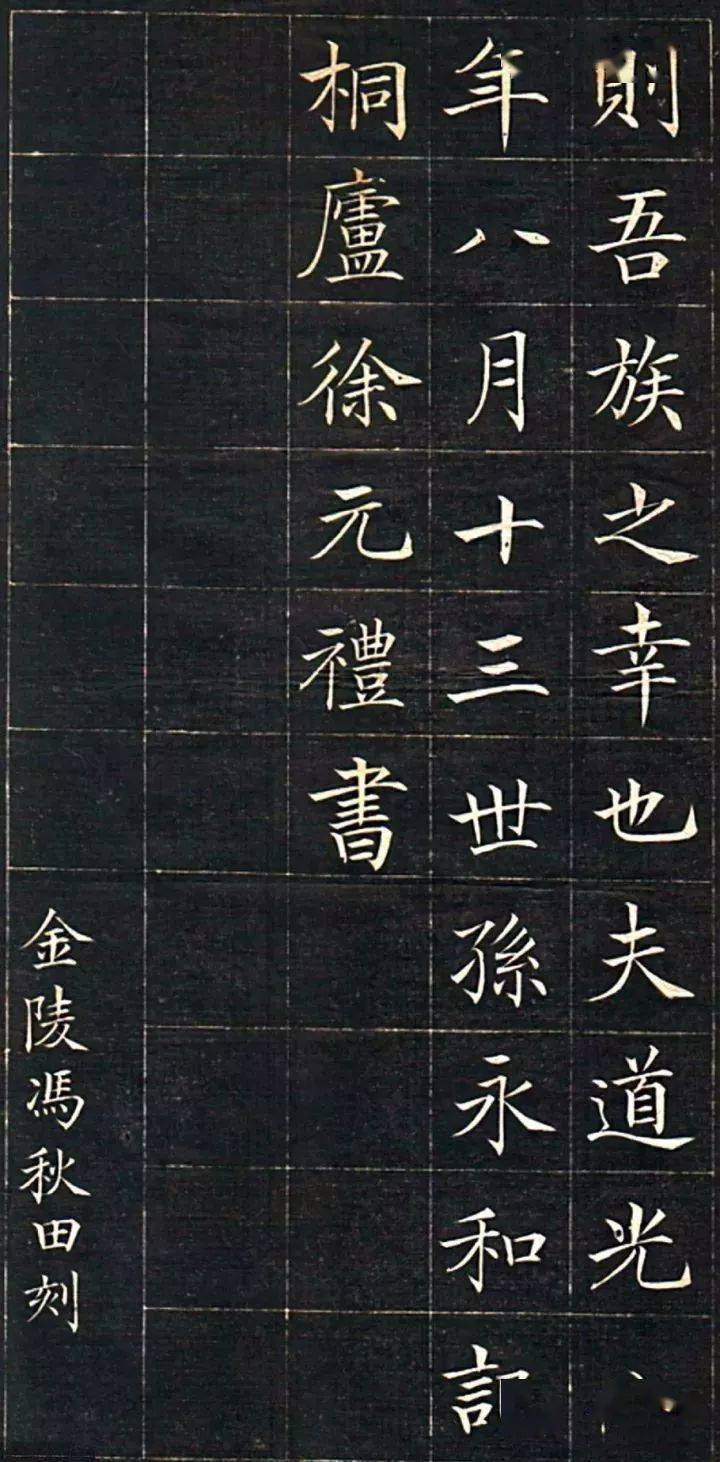 則吾族之幸也夫道光
年八月十三世孫永和記
桐廬徐元禮書
金陵馮秋田刻